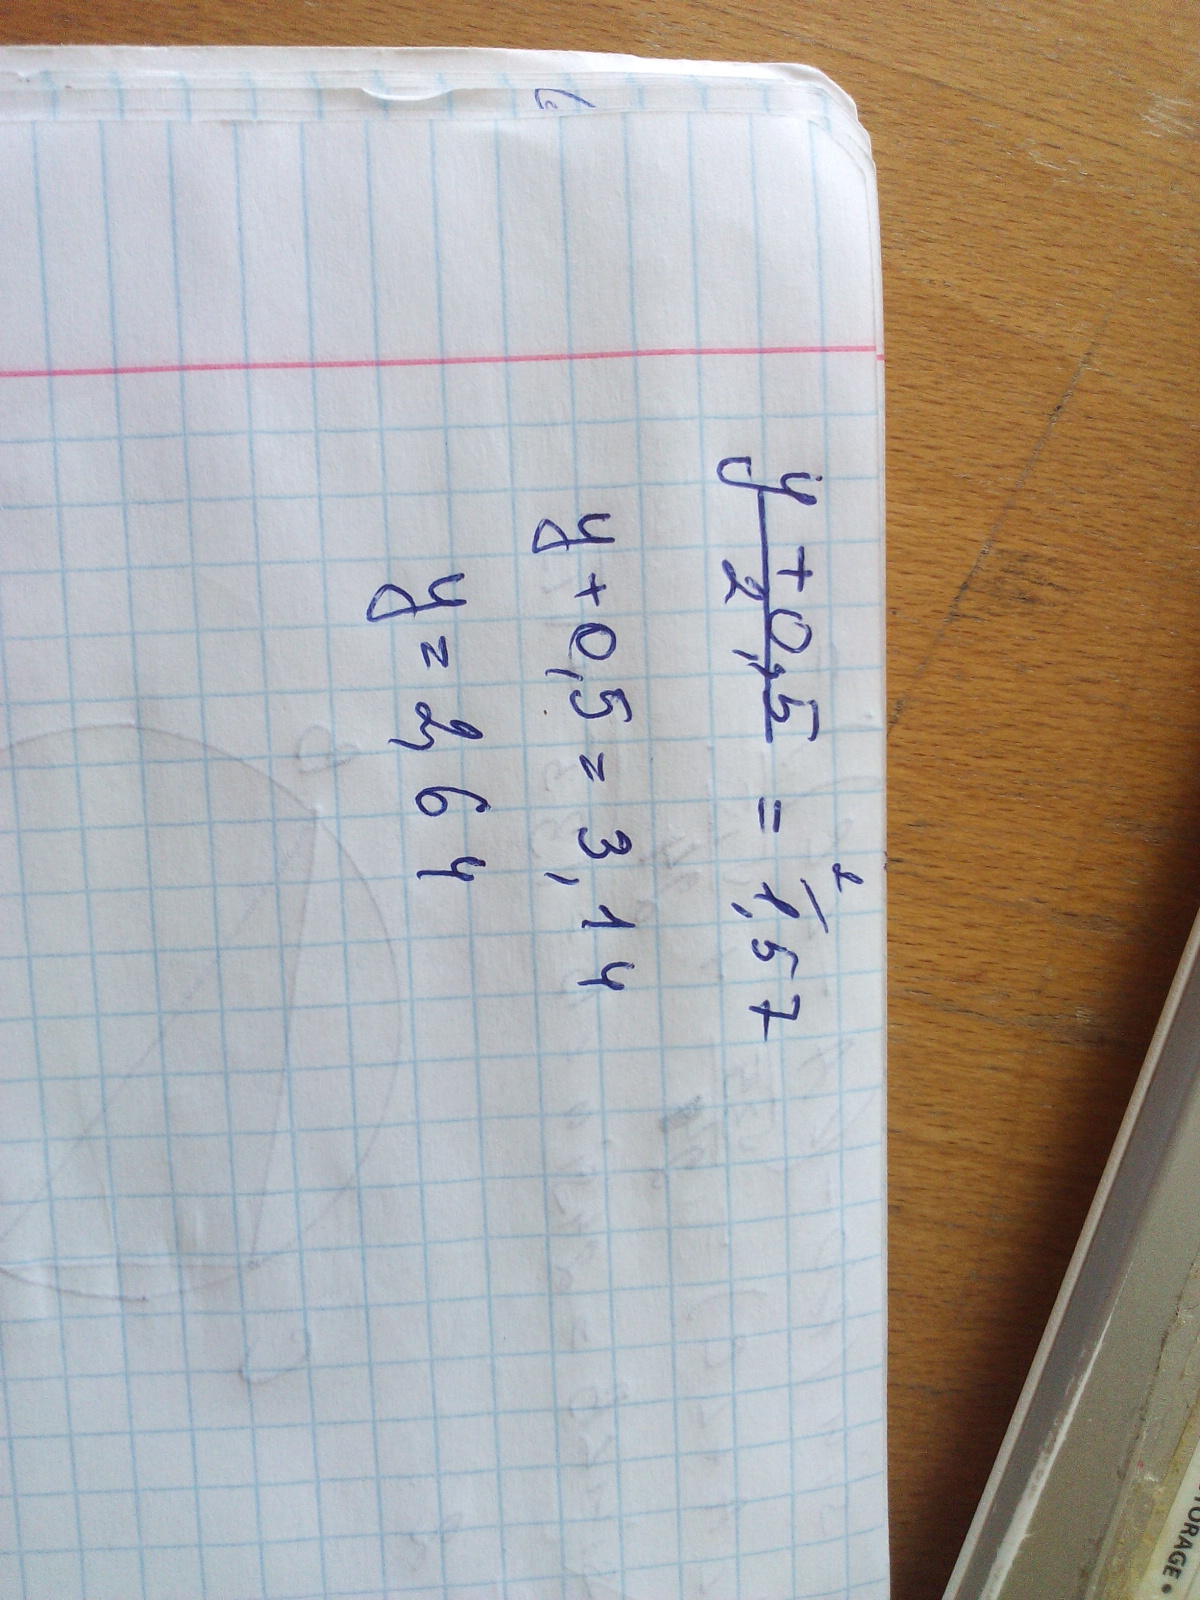 y + 0,5 / 2 = 1,57 2
y + 0,5 = 3,14
y = 2,64
TORAGE •